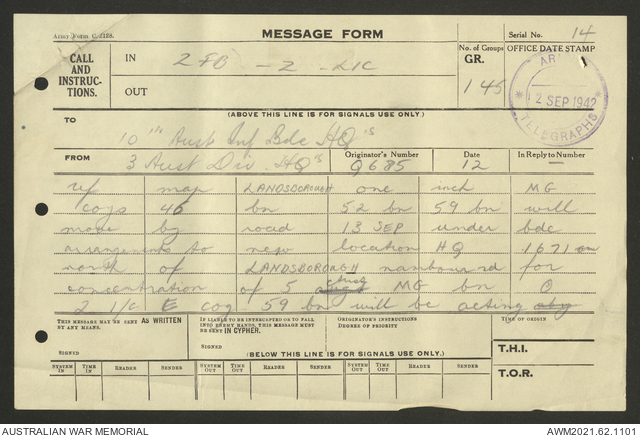 Army Form C. 2128.
MESSAGE FORM
Serial No. 14
CALL AND INSTRUC-TIONS.
IN
2FB - Z
OUT
No. of Groups GR.
145
OFFICE DATE STAMP
12 SEP 1942
TELEGRAPHS
(ABOVE THIS LINE IS FOR SIGNALS USE ONLY.)
TO
10th Aust Inf Bde HQ's
FROM
3 Aust Div. HQ's
Originator's Number
G685
Date
12
In Reply to Number
ref map LANDSBOROUGH one inch MG
coys 46 bn 52 bn 59 bn will
move by road 13 SEP under bde
arrangements to new location HQ 1671
north of LANDSBOROUGH nambour rd for
concentration of 5 MG bn O
2 i/c E coy 59 bn will be acting
THIS MESSAGE MAY BE SENT AS WRITTEN BY ANY MEANS.
SIGNED
IF LIABLE TO BE INTERCEPTED OR TO FALL INTO ENEMY HANDS, THIS MESSAGE MUST BE SENT IN CYPHER.
SIGNED
ORIGINATOR'S INSTRUCTIONS DEGREE OF PRIORITY
TIME OF ORIGIN
(BELOW THIS LINE IS FOR SIGNALS USE ONLY.)
T.H.I.
T.O.R.
SYSTEM IN
TIME IN
READER
SENDER
SYSTEM OUT
TIME OUT
READER
SENDER
SYSTEM OUT
TIME OUT
READER
SENDER
AUSTRALIAN WAR MEMORIAL
AWM2021.62.1101